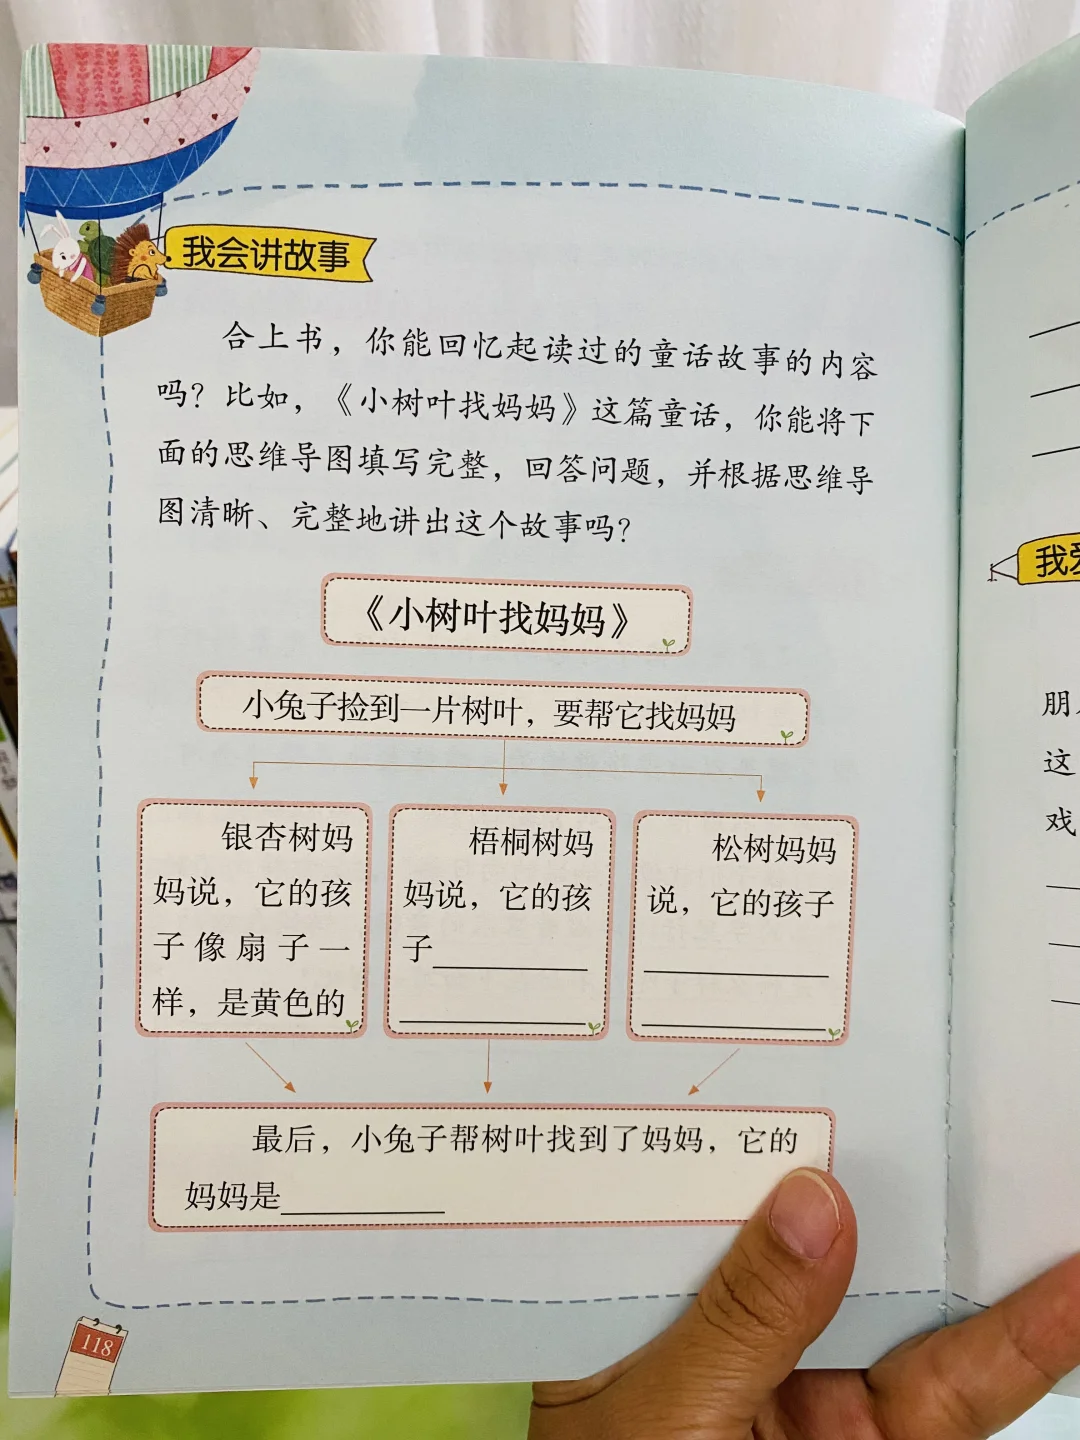 我会讲故事
合上书，你能回忆起读过的童话故事的内容
吗？比如，《小树叶找妈妈》这篇童话，你能将下
面的思维导图填写完整，回答问题，并根据思维导
图清晰、完整地讲出这个故事吗？
《小树叶找妈妈》
小兔子捡到一片树叶，要帮它找妈妈
银杏树妈
妈说，它的孩
子像扇子一
样，是黄色的
梧桐树妈
妈说，它的孩
子
松树妈妈
说，它的孩子
最后，小兔子帮树叶找到了妈妈，它的
妈妈是
118
我
朋
这
戏